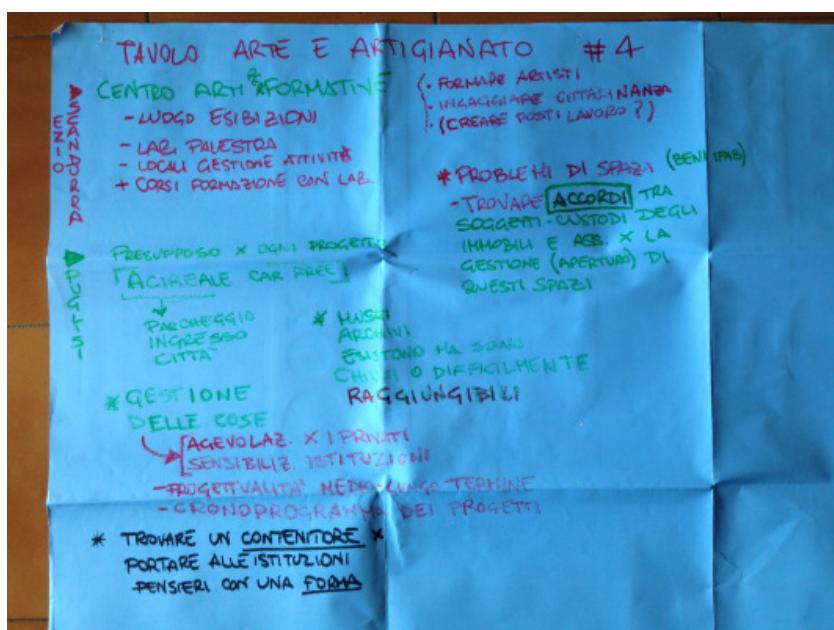 TAVOLO ARTE E ARTIGIANATO #4
CENTRO ARTI PERFORMATIVE
- LUOGO ESIBIZIONI
- LAB. PALESTRA
- LOCALI GESTIONE ATTIVITÀ
+ CORSI FORMAZIONE CON LAB.
· FORMARE ARTISTI
· INGAGGIARE CITTADINANZA
· (CREARE POSTI LAVORO?)
* PROBLEMI DI SPAZI (BENI IPAB)
- TROVARE ACCORDI TRA
SOGGETTI-CUSTODI DEGLI
IMMOBILI E ASS. X LA
GESTIONE (APERTURA) DI
QUESTI SPAZI
SCANDURRA
EZIO
PUGLISI
PRESUPPOSO X OGNI PROGETTO
ACIREALE CAR FREE
PARCHEGGIO
INGRESSO
CITTÀ
* MUSEI
ARCHIVI
ESISTONO MA SONO
CHIUSI O DIFFICILMENTE
RAGGIUNGIBILI
* GESTIONE
DELLE COSE
AGEVOLAZ. X I PRIVATI
SENSIBILIZ. ISTITUZIONI
- PROGETTUALITÀ MEDIO-LUNGO TERMINE
- CRONOPROGRAMMA DEI PROGETTI
* TROVARE UN CONTENITORE X
PORTARE ALLE ISTITUZIONI
PENSIERI CON UNA FORMA